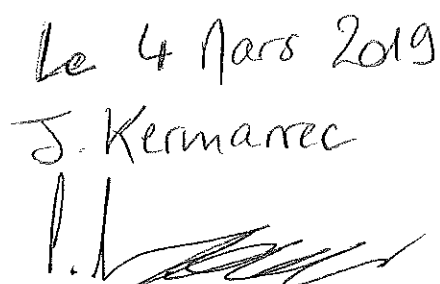 Le 4 Mars 2019
J. Kermarrec